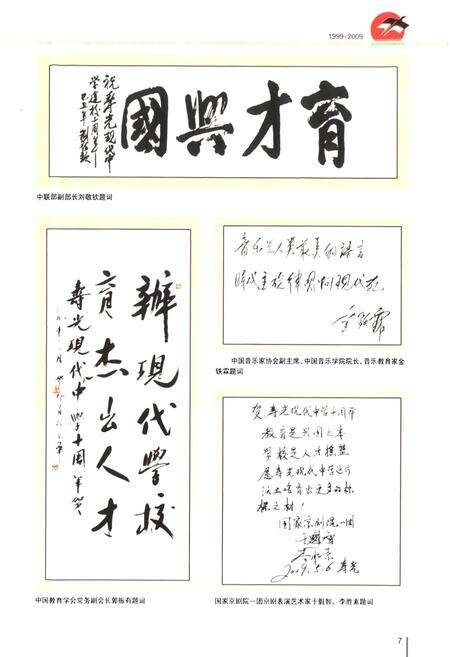 1999-2009
育才興國
祝寿光现代中
学建校十周年
中联部副部长刘敬钦题词
辦現代學校
育杰出人才
寿光现代中学十周年贺
中国教育学会常务副会长郭振有题词
音乐是人类最美的语言
中国音乐家协会副主席、中国音乐学院院长、音乐教育家金
铁霖题词
贺寿光现代中学十周年
教育是兴国之本
学校是人才摇篮
愿寿光现代中学这片
沃土培育出更多的栋
梁之材!
国家京剧院一团
于魁智
李胜素
2009.5.6 寿光
国家京剧院一团京剧表演艺术家于魁智、李胜素题词
7